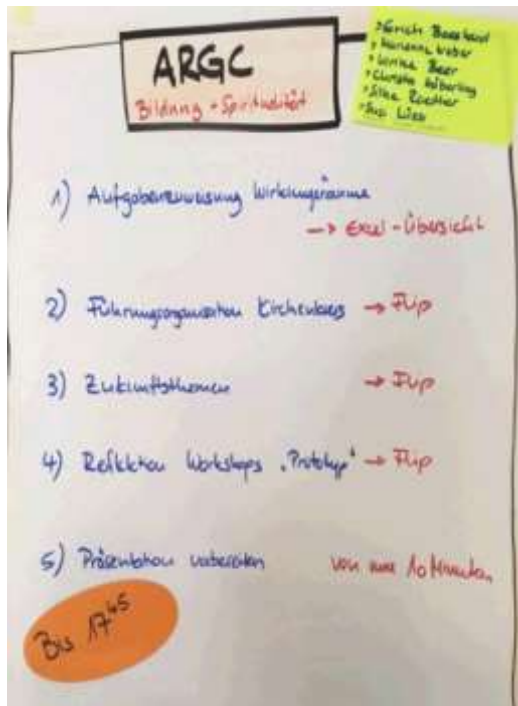 ARGC
Bildung + Spiritualität
Marianne Weber
Ulrike Beer
Silke
1) Aufgabenzuweisung Wirkungsräume
→ Excel-Übersicht
2) Führungsorganisation Kirchenkreis → Flip
3) Zukunftsthemen → Flip
4) Reflektion Workshops "Prototyp" → Flip
5) Präsentation vorbereiten von 10 Minuten
Bis 17⁴⁵